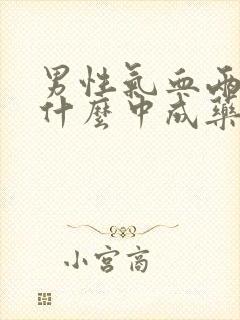 男性氣血兩
什麼中成藥
小宮商